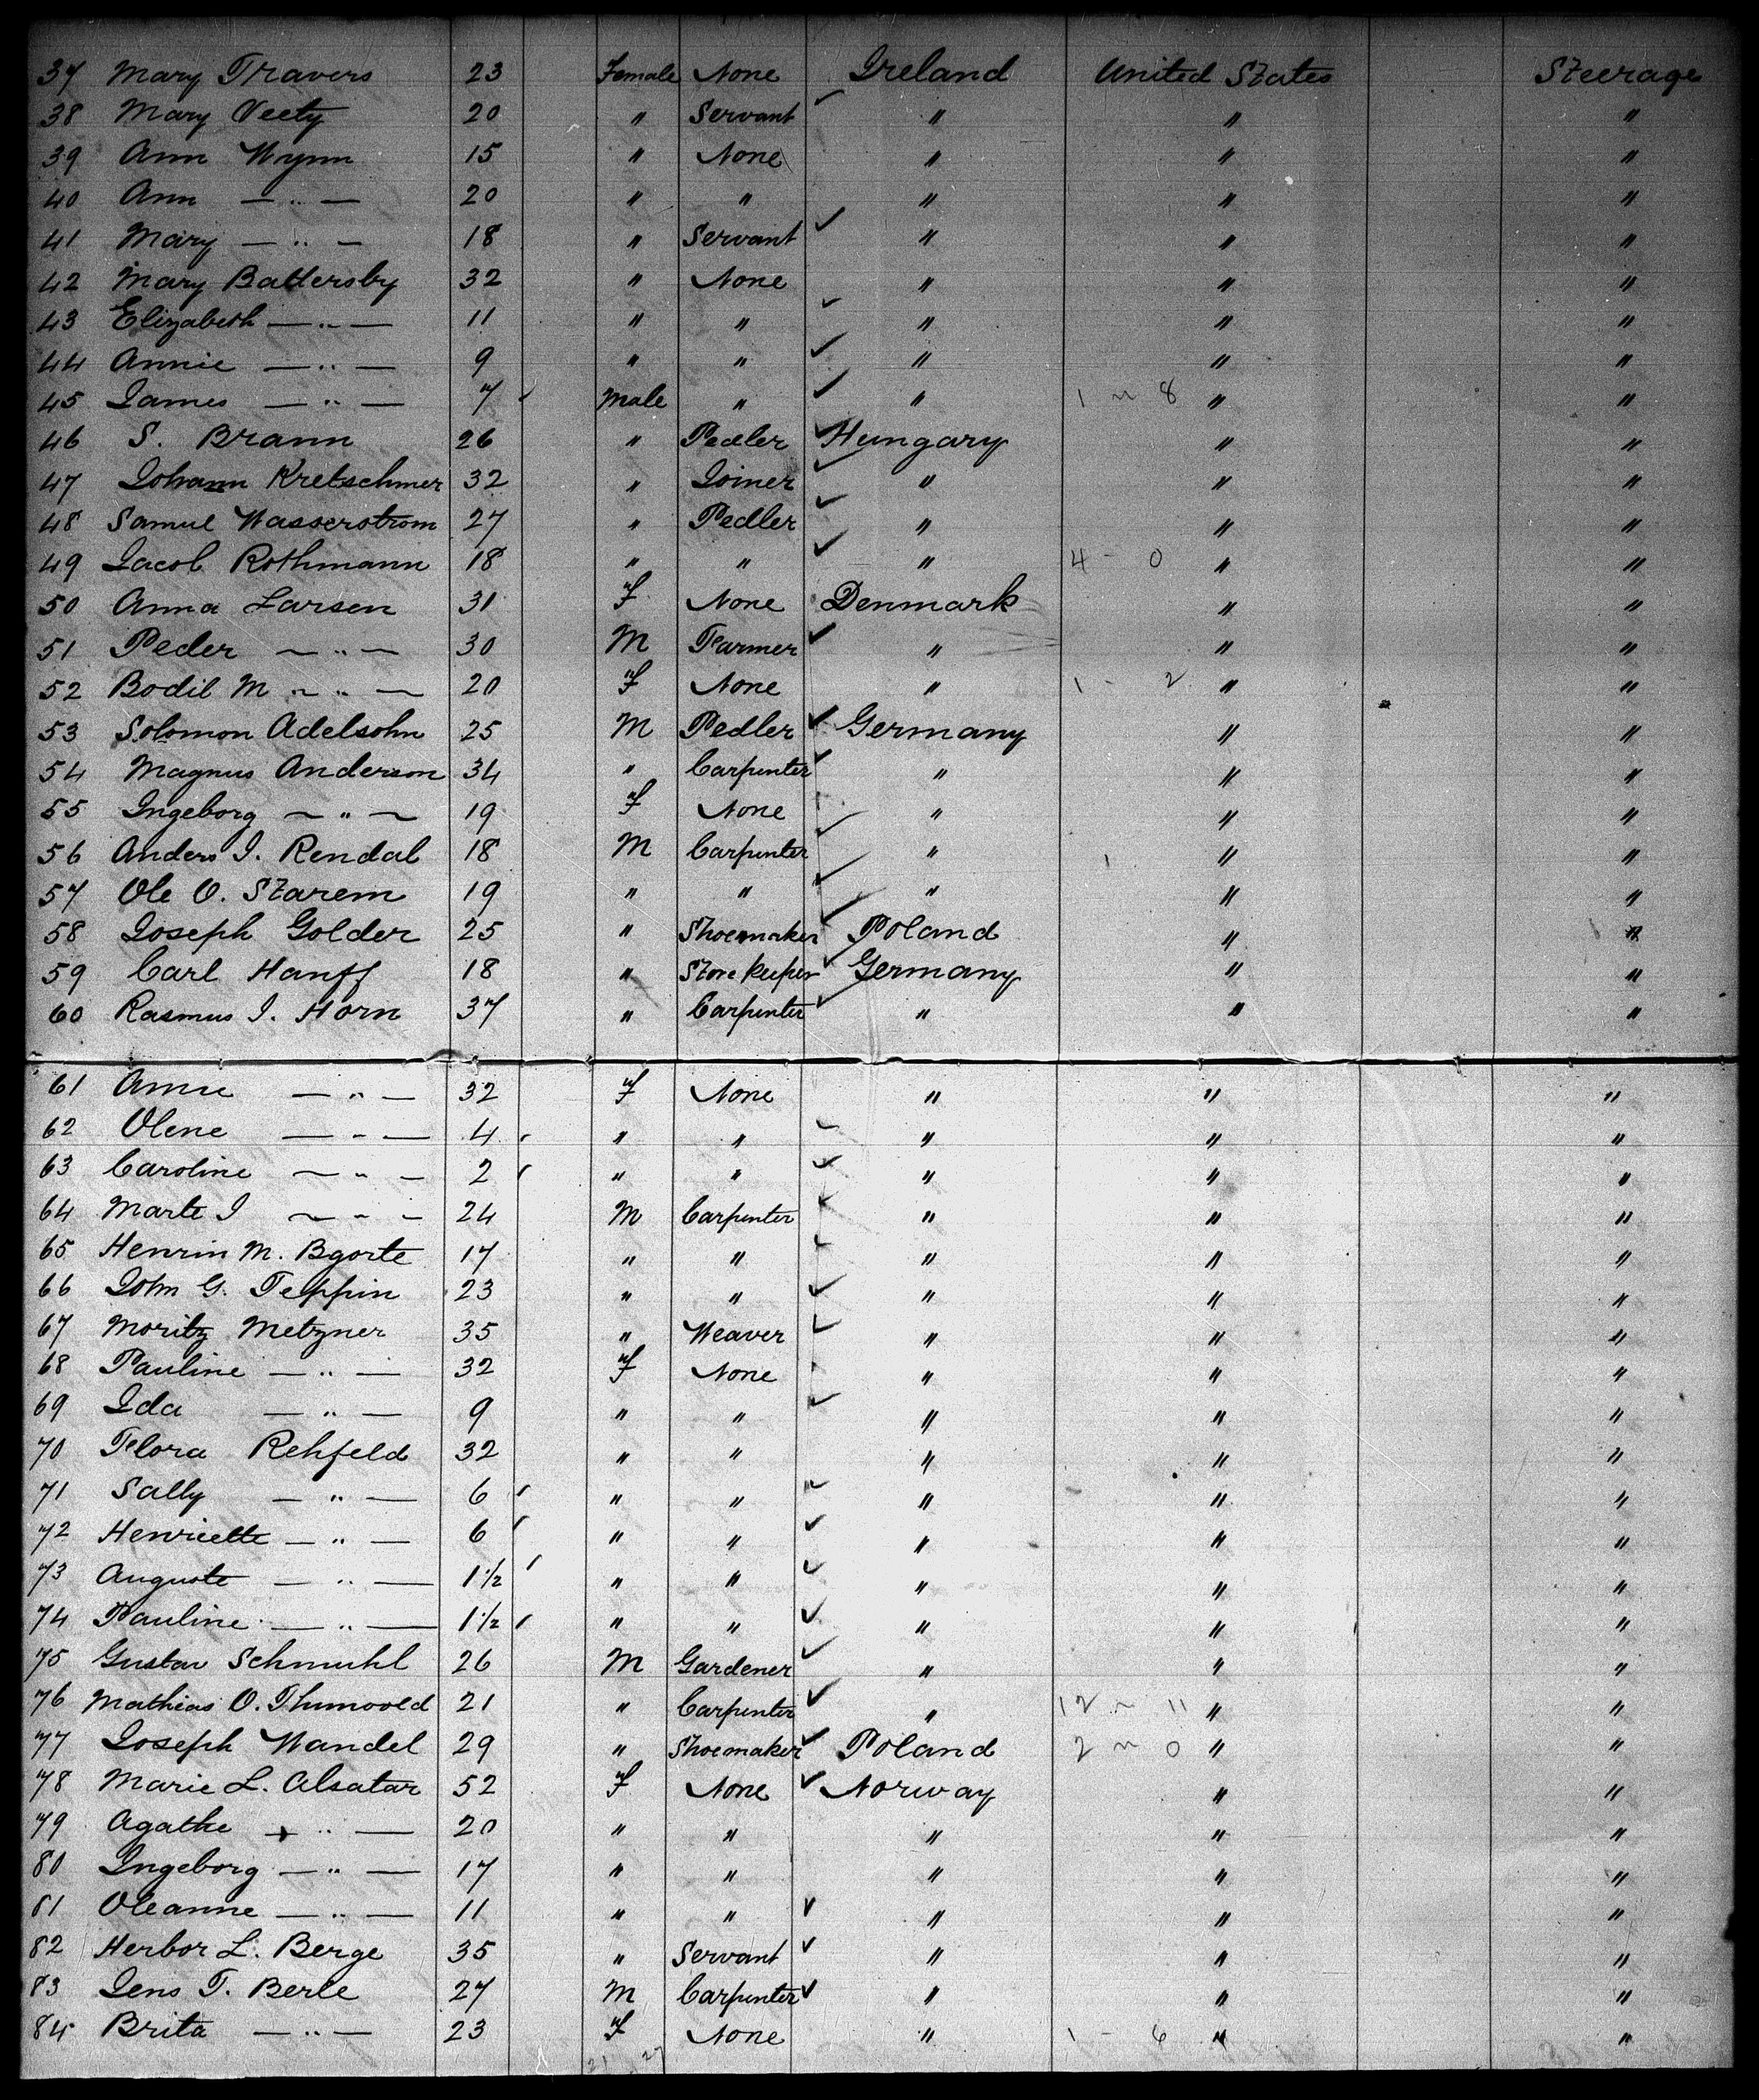 37 Mary Travers 23 Female None Ireland United States Steerage
38 Mary Veety 20 " Servant " " "
39 Ann Wynn 15 " None " " "
40 Ann — " — 20 " " " " "
41 Mary — " — 18 " Servant " " "
42 Mary Battersby 32 " None " " "
43 Elizabeth — " — 11 " " " " "
44 Annie — " — 9 " " " " "
45 James — " — 7 Male " " 1 ~ 8 " "
46 S. Braun 26 " Pedler Hungary " "
47 Johann Kretschmer 32 " Joiner " " "
48 Samul Wasserstrom 27 " Pedler " " "
49 Jacob Rothmann 18 " " " 4 - 0 " "
50 Anna Larsen 31 F None Denmark " "
51 Peder — " — 30 M Farmer " " "
52 Bodil M — " — 20 F None " 1 - 2 " "
53 Solomon Adelsohn 25 M Pedler Germany " "
54 Magnus Anderson 34 " Carpenter " " "
55 Ingeborg — " — 19 F None " " "
56 Anders I. Rendal 18 M Carpenter " " "
57 Ole O. Starem 19 " " " " "
58 Joseph Golder 25 " Shoemaker Poland " "
59 Carl Hanff 18 " Storekeeper Germany " "
60 Rasmus I. Horn 37 " Carpenter " " "
61 Anne — " — 32 F None " " "
62 Olene — " — 4 " " " " "
63 Caroline — " — 2 " " " " "
64 Marte I — " — 24 M Carpenter " " "
65 Henrin M. Bgorte 17 " " " " "
66 John G. Teppin 23 " " " " "
67 Moritz Metzner 35 " Weaver " " "
68 Pauline — " — 32 F None " " "
69 Ida — " — 9 " " " " "
70 Flora Rehfeld 32 " " " " "
71 Sally — " — 6 " " " " "
72 Henriette — " — 6 " " " " "
73 Auguste — " — 1 1/2 " " " " "
74 Pauline — " — 1 1/2 " " " " "
75 Gustav Schmuhl 26 M Gardener " " "
76 Mathias O. 21 " Carpenter " 12 ~ 11 " "
77 Joseph Wandel 29 " Shoemaker Poland 2 ~ 0 " "
78 Marie L. Alsatar 52 F None Norway " "
79 Agathe — " — 20 " " " " "
80 Ingeborg — " — 17 " " " " "
81 Oleanne — " — 11 " " " " "
82 Herbor L. Berge 35 " Servant " " "
83 Jens T. Berle 27 M Carpenter " " "
84 Brita — " — 23 F None " 1 - 6 " "
21 27